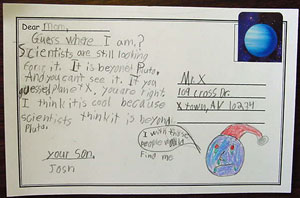 Dear Mom,
Guess where I am?
Scientists are still looking
for it. It is beyond Pluto.
And you can't see it. If you
guessed Planet X, you are right
I think it's cool because
scientists think it is beyond
Pluto.
your son,
Josh
Mr. X
109 Cross Dr.
X town, AV 10274
I wish those
people would
Find me